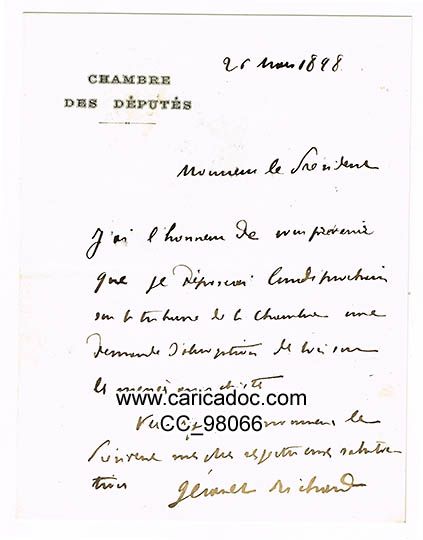 26 Mars 1898
CHAMBRE
DES DÉPUTÉS
Monsieur le Président
J'ai l'honneur de vous prévenir
que je déposerai lundi prochain
sur la tribune de la chambre une
demande de
les
www.caricadoc.com
CC_98066
Monsieur le
Président mes respectueuses saluta
tions Gérault Richard